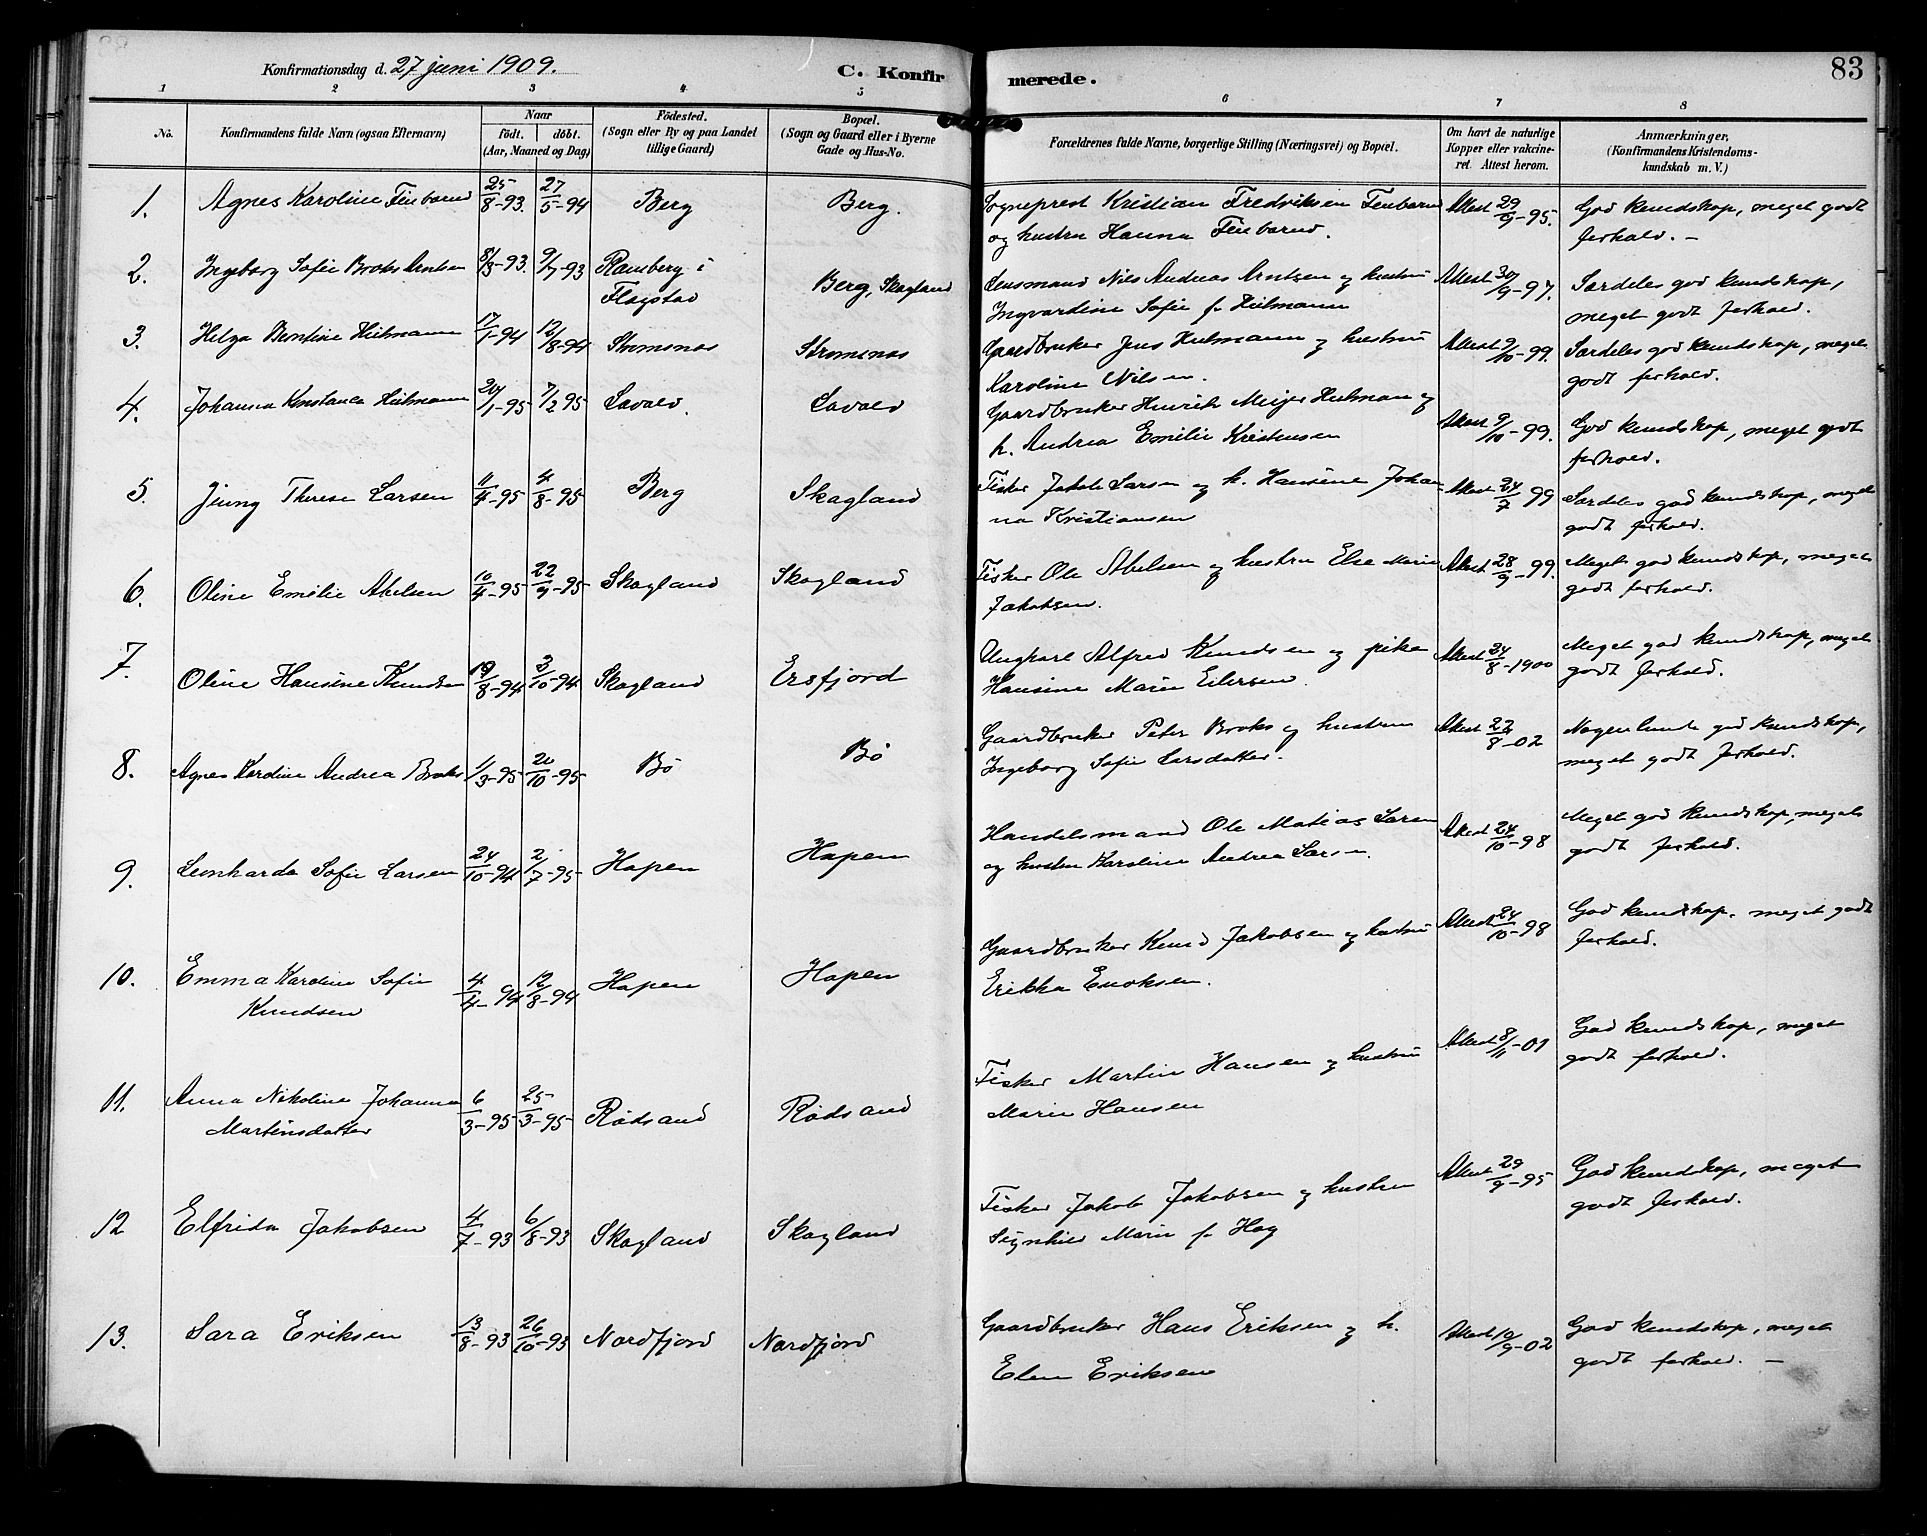 Konfirmationsdag d. 27 juni 1909.
C. Konfirmerede.
83
1 2 3 4 5 6 7 8
No.
Konfirmandens fulde Navn (ogsaa Efternavn)
Naar
født. døbt.
(Aar, Maaned og Dag)
Fødested.
(Sogn eller By og paa Landet
tillige Gaard)
Bopæl.
(Sogn og Gaard eller i Byerne
Gade og Hus-No.
Forældrenes fulde Navne, borgerlige Stilling (Næringsvei) og Bopæl.
Om havt de naturlige
Kopper eller vakcine-
ret. Attest herom.
Anmærkninger,
(Konfirmandens Kristendoms-
kundskab m. V.)
1. Agnes Karoline 25/8-93. 27/5-94 Berg Berg. Sogneprest Kristian Fredriksen Attest 29/9-95. God kundskap, meget godt
og hustru Hanna forhold. -
2. Ingeborg Sofie Broks Arntsen 8/3-93. 9/7-93 Ramberg i Berg, Skagland Lensmand Nils Andreas Arntsen og hustru Attest 30/9-97. Særdeles god kundskap,
Flagstad Ingvardine Sofie f. Heitmann meget godt forhold.
3. Helga Berntine Heitmann 17/1-94 12/8-94 Strømsnes Strømsnes Gaardbruker Jens Heitmann og hustru Attest 9/10-99. Særdeles god kundskap, meget
Karoline Nilsen. godt forhold.
4. Johanna Konstance Heitmann 20/1-95 7/2 95 Gaardbruker Henrik Meijer Heitman og Attest 9/10-99. God kundskap, meget godt
h. Andrea Emilie Kristensen forhold.
5. Jenny Therese Larsen 11/4-95 4/8-95 Berg Skagland Fisker Jakob Larsen og h. Hansine Johan- Attest 24/7 99 Særdeles god kundskap, meget
na Kristiansen godt forhold.
6. Oline Emilie Abelsen 10/4-95 22/9-95 Skagland Skagland Fisker Ole Abelsen og hustru Else Marie Attest 28/9-99. Meget god kundskap, meget
Jakobsen. godt forhold.
7. Oline Hansine Knudsen 19/8-94 3/10-94 Skagland Ersfjord Ungkarl Alfred Knudsen og pike Attest 24/8-1900 Meget god kundskap, meget
Hansine Marie Eilersen. godt forhold.
8. Agnes Karoline Andrea Broks 1/3-95 20/10-95 Bø Bø Gaardbruker Peter Broks og hustru Attest 22/8-02 Nogenlunde god kundskap,
Ingeborg Sofie Larsdatter. meget godt forhold.
9. Leonharda Sofie Larsen 24/10-94 2/7-95 Hopen Hopen Handelsmand Ole Matias Larsen Attest 24/10-98 Meget god kundskap, meget
og hustru Karoline Andrea Larsen. godt forhold.
10. Emma Karoline Sofie 4/4-94 12/8-94 Hopen Hopen Gaardbruker Knud Jakobsen og hustru Attest 24/10-98 God kundskap. meget godt
Knudsen Erikka Enoksen. forhold.
11. Anna Nikoline Johanna 6/3-95 25/3-95 Rødsand Rødsand Fisker Martin Hansen og hustru Attest 8/11-01 God kundskap, meget
Martinsdatter Marie Hansen godt forhold.
12 Elfrida Jakobsen 4/7-93 6/8-93 Skagland Skagland Fisker Jakob Jakobsen og hustru Attest 29/9-95 God kundskap, meget
Marie f. Hog godt forhold.
13. Sara Eriksen 13/8-93 26/10-93 Nordfjord Nordfjord Gaardbruker Hans Eriksen og h. Attest 19/9-02 God kundskap, meget
Elen Eriksen godt forhold. -